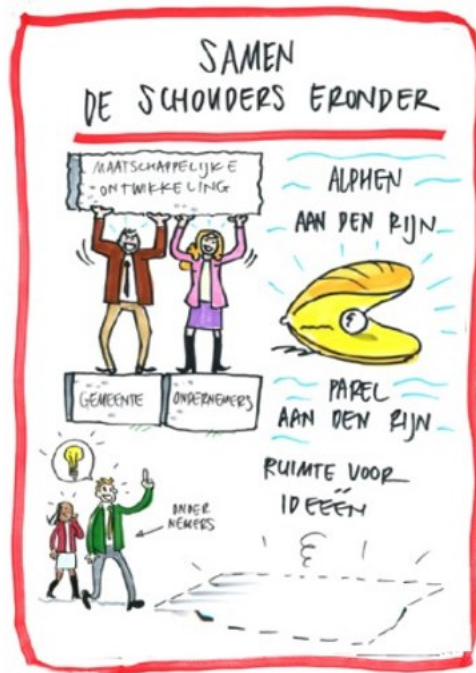 SAMEN
DE SCHOUDERS ERONDER
MAATSCHAPPELIJKE
ONTWIKKELING
ALPHEN
AAN DEN RIJN
GEMEENTE
ONDERNEMERS
PAREL
AAN DEN RIJN
RUIMTE VOOR
IDEEËN
ONDER
NEMERS